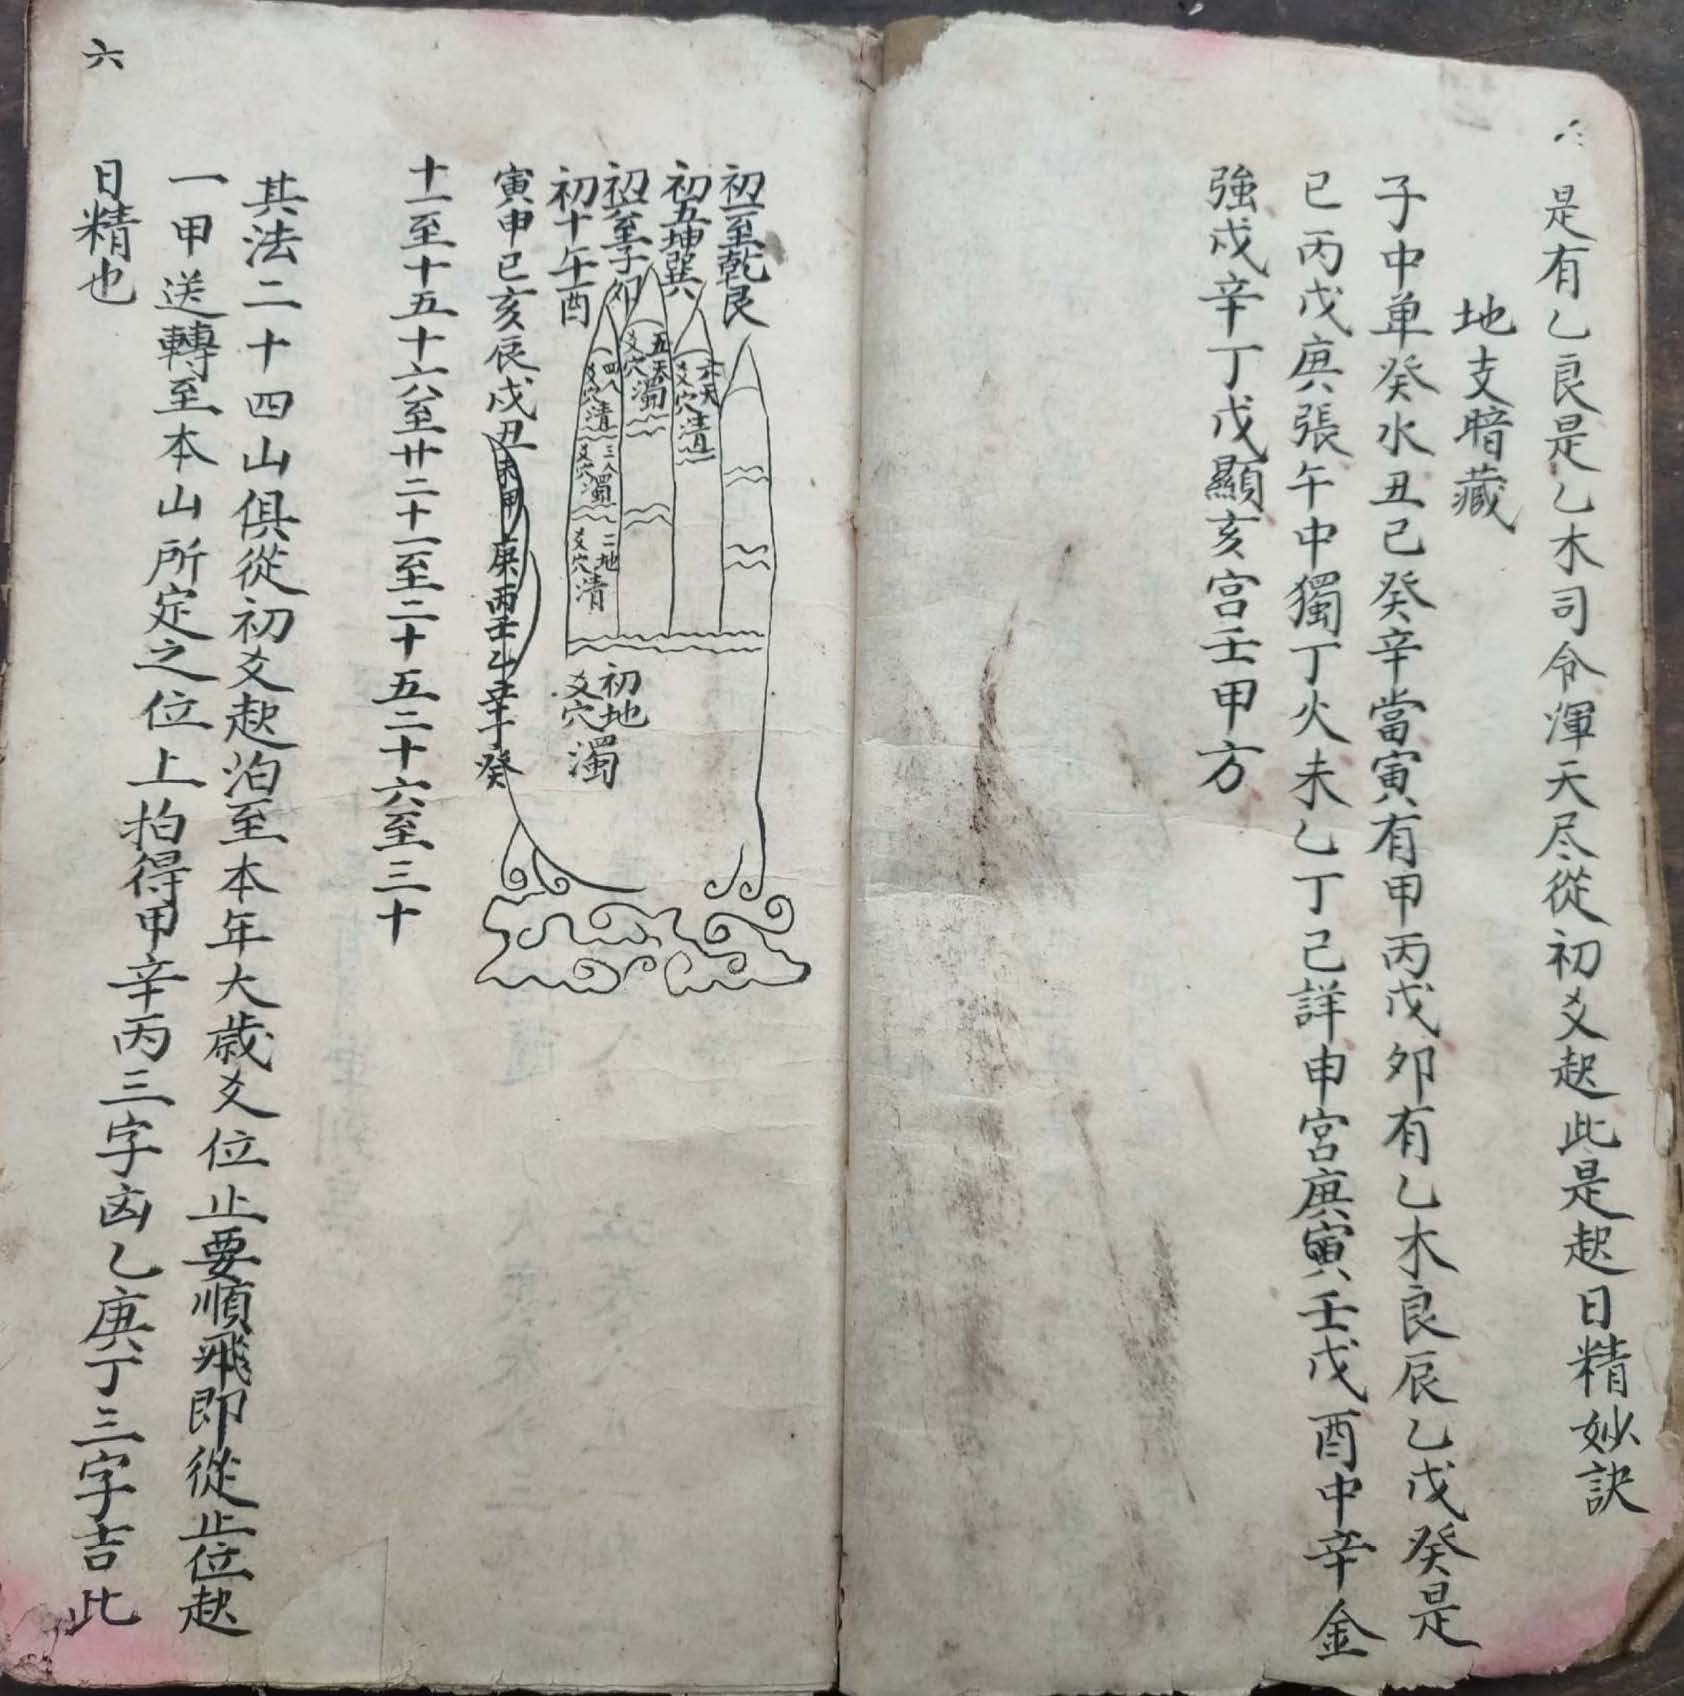 是有乙良是乙木司令渾天尽從初爻起此是起日精妙訣
地支暗藏
子中单癸水丑己癸辛當寅有甲丙戊夘有乙木良辰乙戊癸是
已丙戊庚張午中獨丁火未乙丁己詳申宮庚寅壬戊酉中辛金
強戍辛丁戊顯亥宫壬甲方
六
初一至乾艮
初五坤巽
初至子夘
初十午酉
寅申巳亥辰戍丑未甲庚丙壬乙辛丁癸
十一至十五十六至廿二十一至二十五二十六至三十
六天爻穴清
五天爻穴濁
四人爻穴清
三人爻穴濁
二地爻穴清
初地爻穴濁
其法二十四山俱從初爻起泊至本年大歲爻位止要順飛即從止位起
一甲送轉至本山所定之位上拍得甲辛丙三字凶乙庚丁三字吉此
日精也